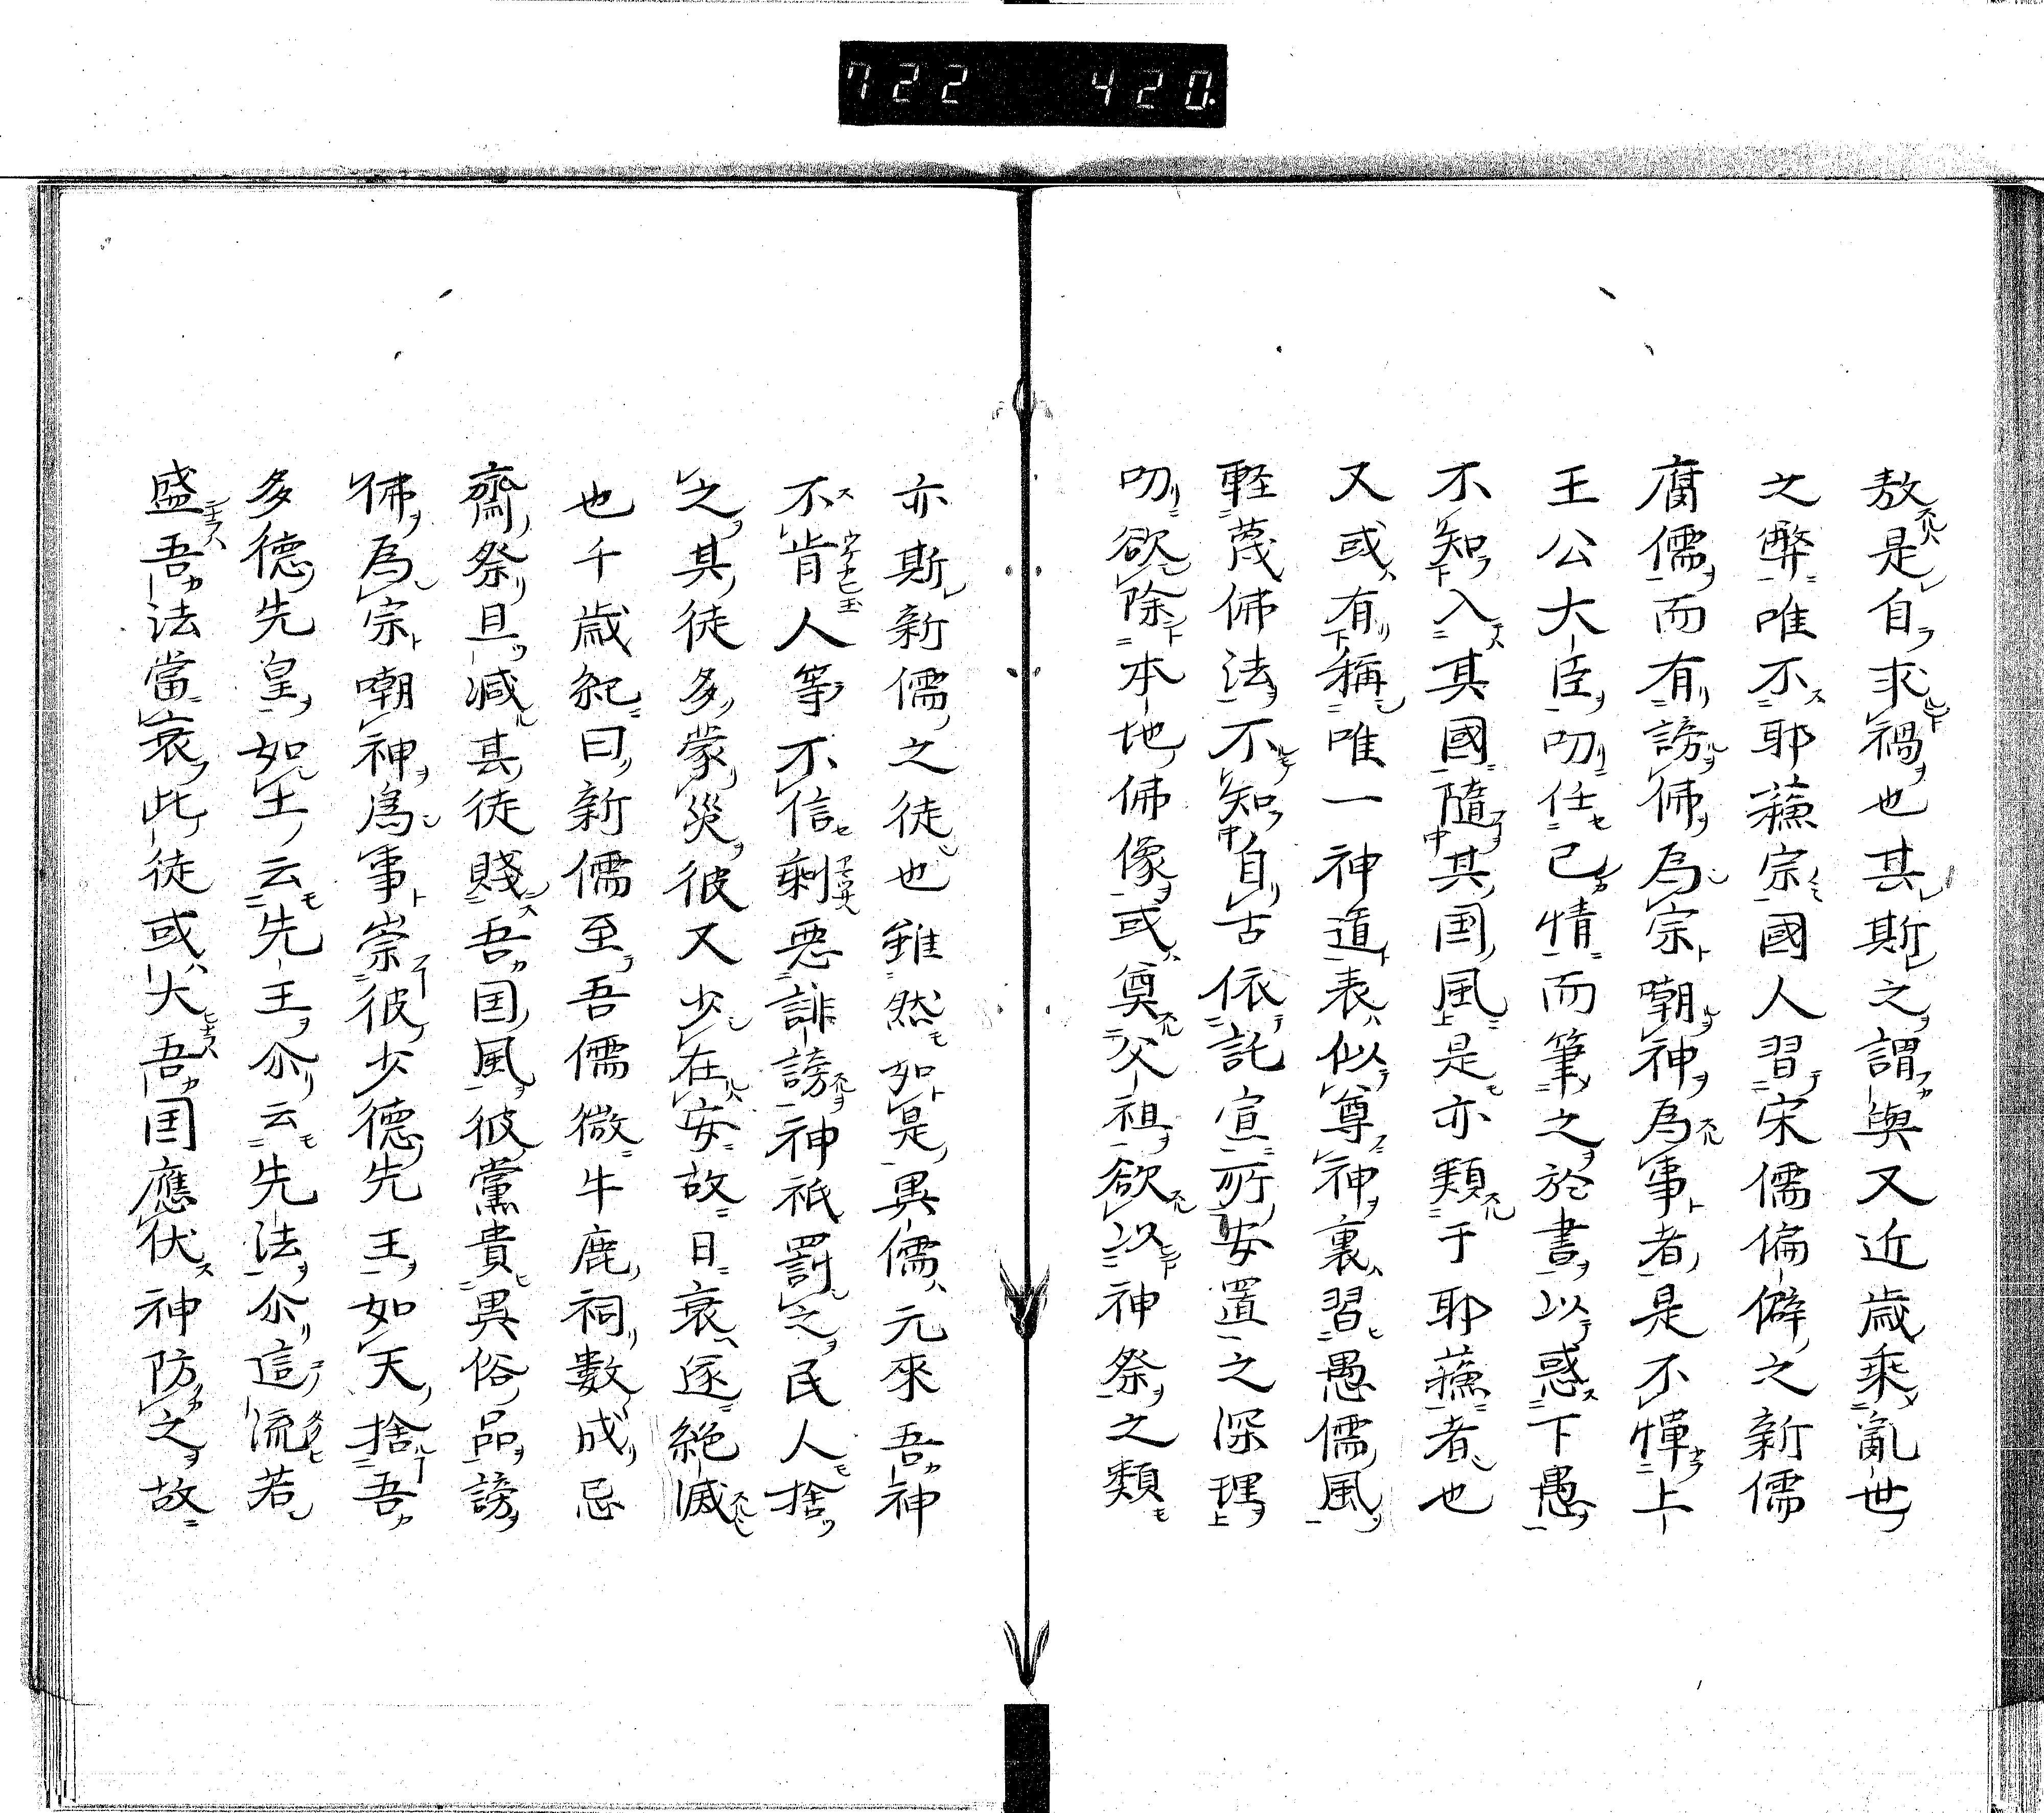 722 420.
敖是自求禍也其斯之謂與又近歳乘亂世
之弊唯不耶蘓宗國人習宋儒偏僻之新儒
腐儒而有謗佛為宗嘲神為事者是不憚上
王公大臣叨任己情而筆之於書以惑下愚
不知入其國隨其国風是亦類于耶蘓者也
又或有稱唯一神道表似尊神裏習愚儒風
輕蔑佛法不知自古依託宣所安置之深理
叨欲除本地佛像或奠父祖欲以神祭之類
亦斯新儒之徒也雖然如是異儒元來吾神
不肯人等不信剰惡誹謗神祇罰之民人捨
之其徒多蒙災彼又少在安故日衰逐絶滅
也千歳紀曰新儒至吾儒微牛鹿祠數成忌
齋祭且減其徒賤吾国風彼黨貴異俗品謗
佛為宗嘲神為事崇彼少德先王如天捨吾
多德先皇如土云先王尒云先法尒這流若
盛吾法當衰此徒或大吾国應伏神防之故